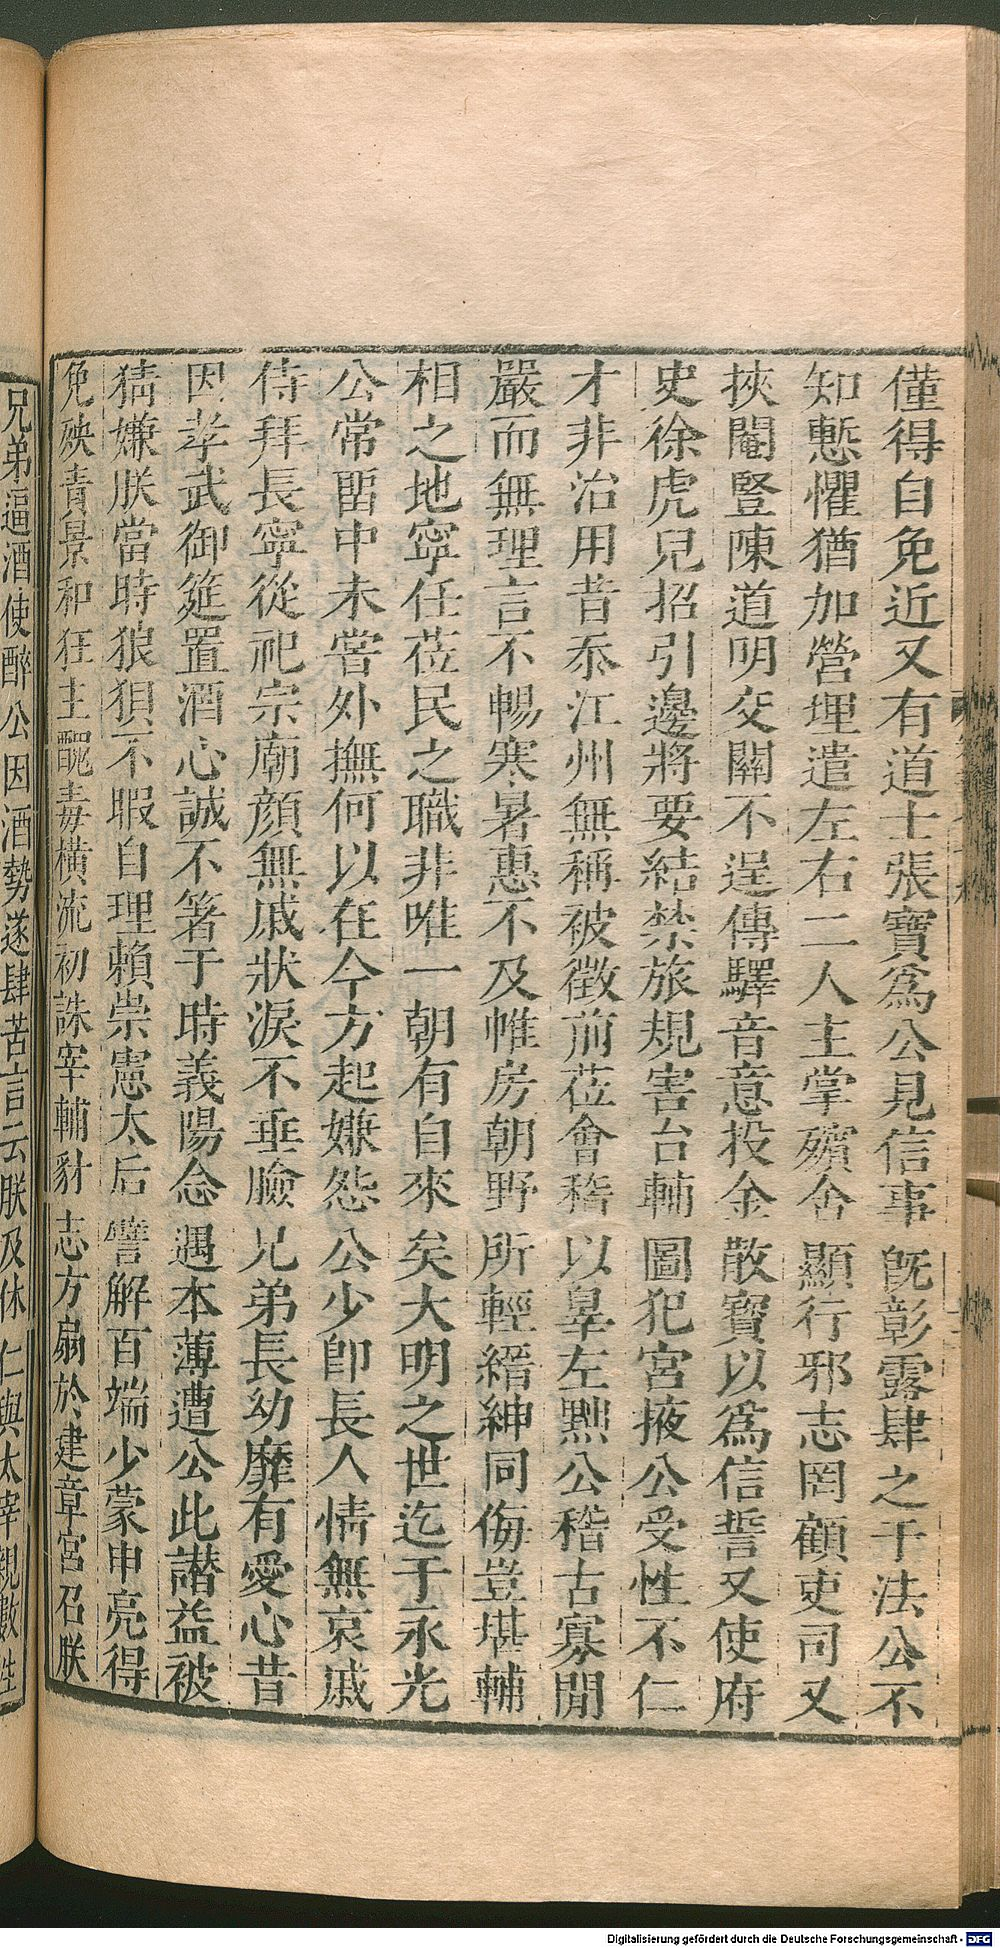 僅得自免近又有道士張寶爲公見信事旣彰露肆之于法公不
知慙懼猶加營理遣左右二人主掌殯含顯行邪志罔顧吏司又
挾閹豎陳道明交關不逞傳驛音意投金散寶以爲信誓又使府
史徐虎兒招引邊將要結禁旅規害台輔圖犯宮掖公受性不仁
才非治用昔忝江州無稱被徵前莅會稽以辠左黜公稽古寡聞
嚴而無理言不暢寒暑惠不及帷房朝野所輕縉紳同侮豈堪輔
相之地寧任莅民之職非唯一朝有自來矣大明之世迄于永光
公常畱中未嘗外撫何以在今方起嫌怨公少卽長人情無哀戚
侍拜長寧從祀宗廟顏無戚狀淚不垂臉兄弟長幼靡有愛心昔
因孝武御筵置酒心誠不箸于時義陽念遇本薄遭公此譖益被
猜嫌朕當時狼狽不暇自理賴崇憲太后譬解百端少蒙申亮得
免殃責景和狂主醜毒橫流初誅宰輔豺志方扇於建章宮召朕
兄弟逼酒使醉公因酒勢遂肆苦言云朕及休仁與太宰親數往
Digitalisierung gefördert durch die Deutsche Forschungsgemeinschaft - DFG